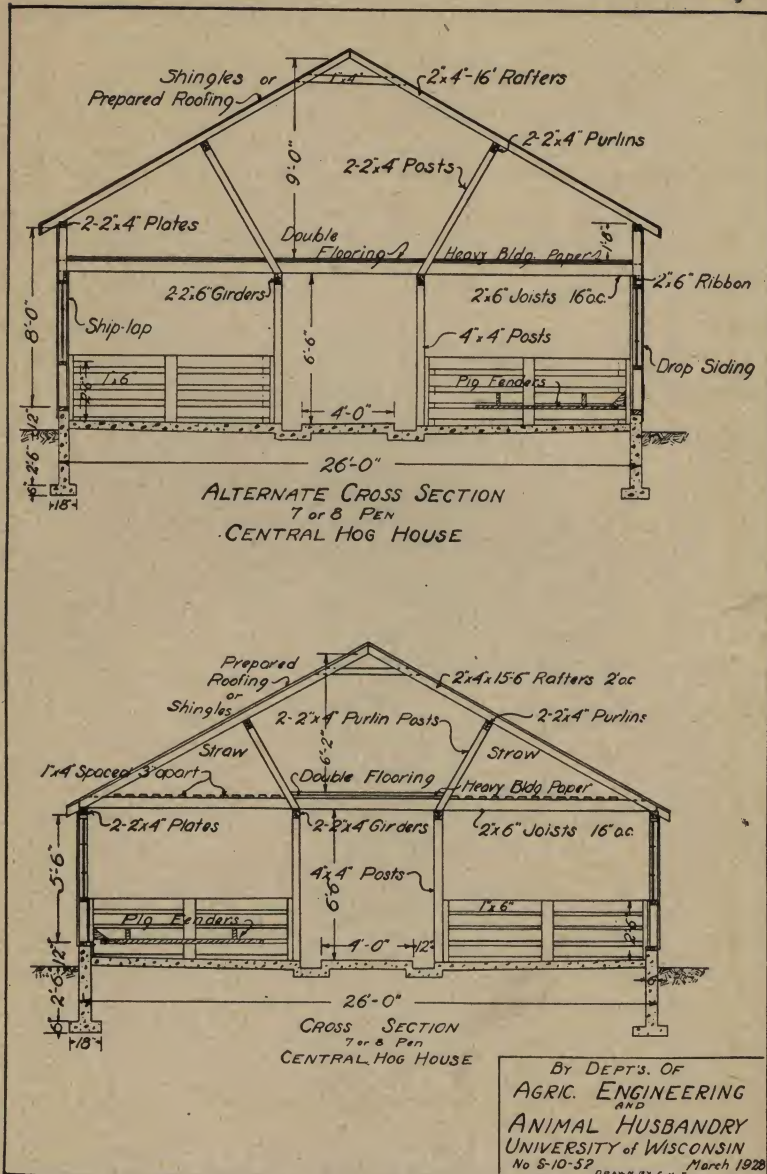 Shingles or
Prepared Roofing
1"x4"
2"x4"-16' Rafters
2-2"x4" Purlins
2-2"x4" Posts
9'-0"
2-2"x4" Plates
Double
Flooring
Heavy Bldg. Paper
1'-8"
2-2"x6" Girders
2"x6" Joists 16"o.c.
2"x6" Ribbon
8'-0"
Ship-lap
6'-6"
4"x4" Posts
Drop Siding
1"x6"
2'-6"
Pig Fenders
4'-0"
12"
2'-6"
6"
26'-0"
18"
ALTERNATE CROSS SECTION
7 or 8 PEN
CENTRAL HOG HOUSE
Prepared
Roofing
or
Shingles
2"x4"x15'-6" Rafters 2'oc
2-2"x4" Purlin Posts
2-2"x4" Purlins
6'-2"
Straw
Straw
1"x4" Spaced 3" apart
Double Flooring
Heavy Bldg Paper
2-2"x4" Plates
2-2"x4" Girders
2"x6" Joists 16"o.c.
5'-6"
4"x4" Posts
6'-6"
1"x6"
2'-6"
Pig Fenders
4'-0"
12"
12"
2'-6"
6"
26'-0"
18"
CROSS SECTION
7 or 8 Pen
CENTRAL HOG HOUSE
BY DEPT'S. OF
AGRIC. ENGINEERING
AND
ANIMAL HUSBANDRY
UNIVERSITY of WISCONSIN
No S-10-52 March 1928